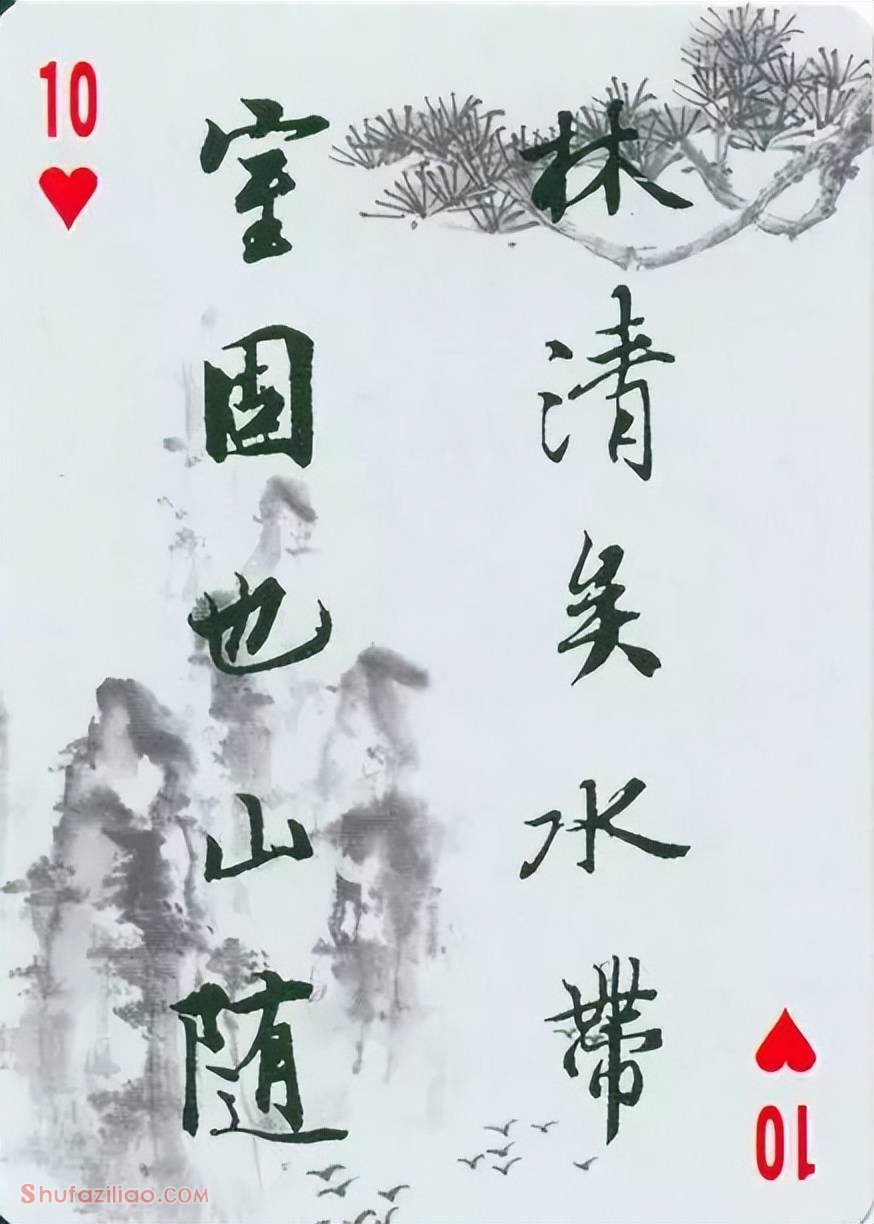 10
林清矣水帶
室固也山随
10
Shufaziliao.com